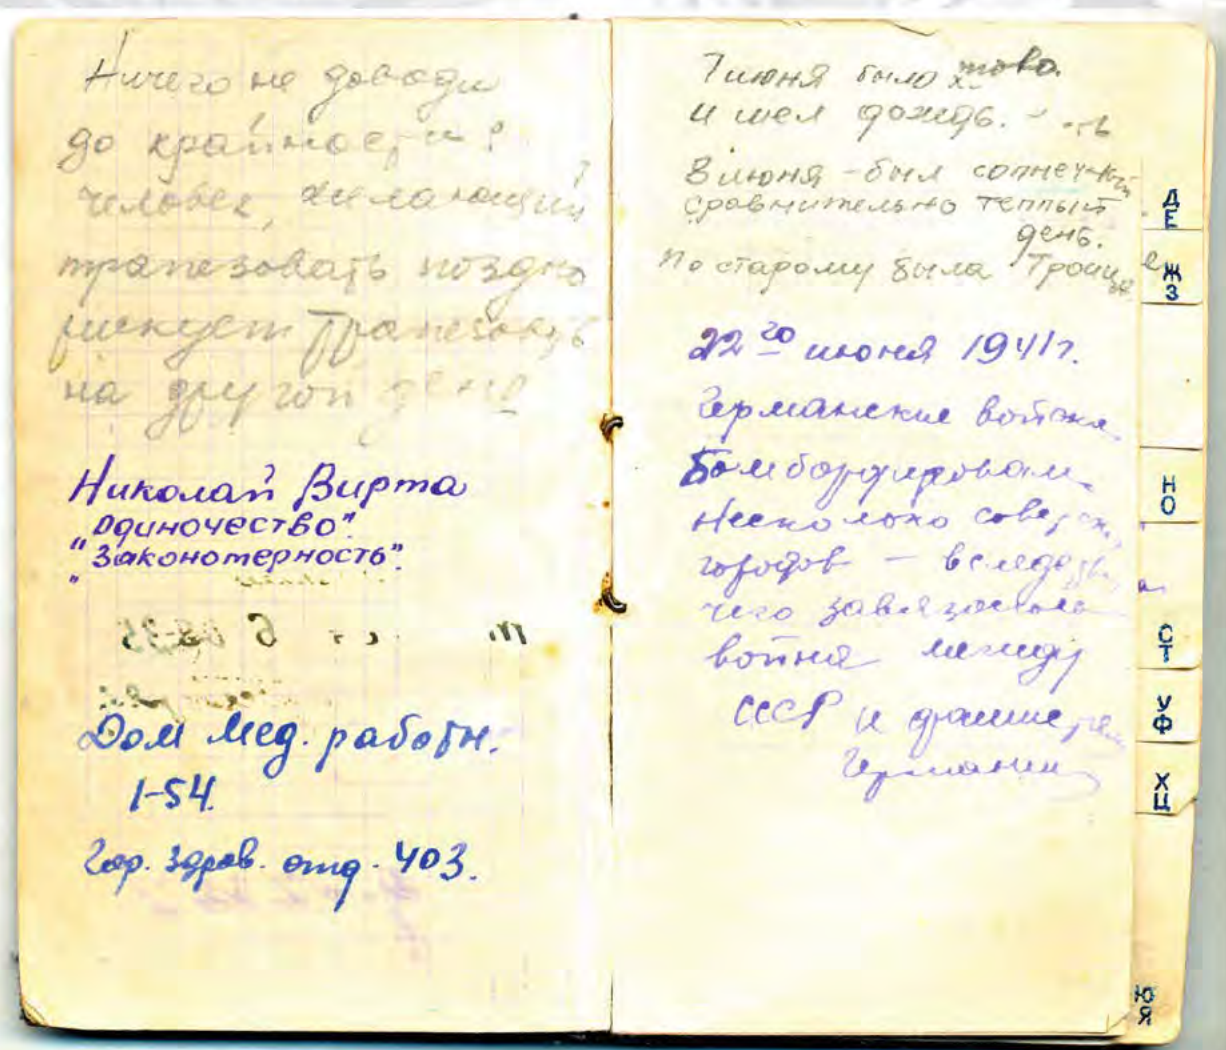 Ничего не доводи
до крайности!
человек, желающий
трапезовать поздно
рискует трапезовать
на другой день
Николай Вирта
"Одиночество".
"Закономерность".
"
Дом Мед. работн.
1-54.
Гор. здрав. отд. 403.
7 июня было
и шел дождь.
8 июня - был солнечный
сравнительно теплый
день.
По старому была Троица
22го июня 1941 г.
Германские войска
Бомбордировали
Несколько советск.
городов - вследствие
чего завязалась
война между
СССР и фашистской
Германией
Д
Е
Ж
З
Н
О
С
Т
У
Ф
Х
Ц
Ю
Я